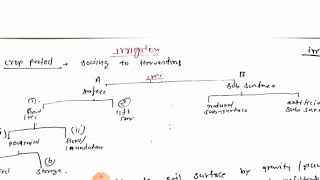 Irrigation
crop period → Sowing to Harvesting
irri
A B
Surface Sub Surface
(1) (2)
flow lift
irri irr
natural
sub-surface
Sub surface
(i) (ii)
perennial flow/
inundation
(b)
Storage.
to soil surface by gravity